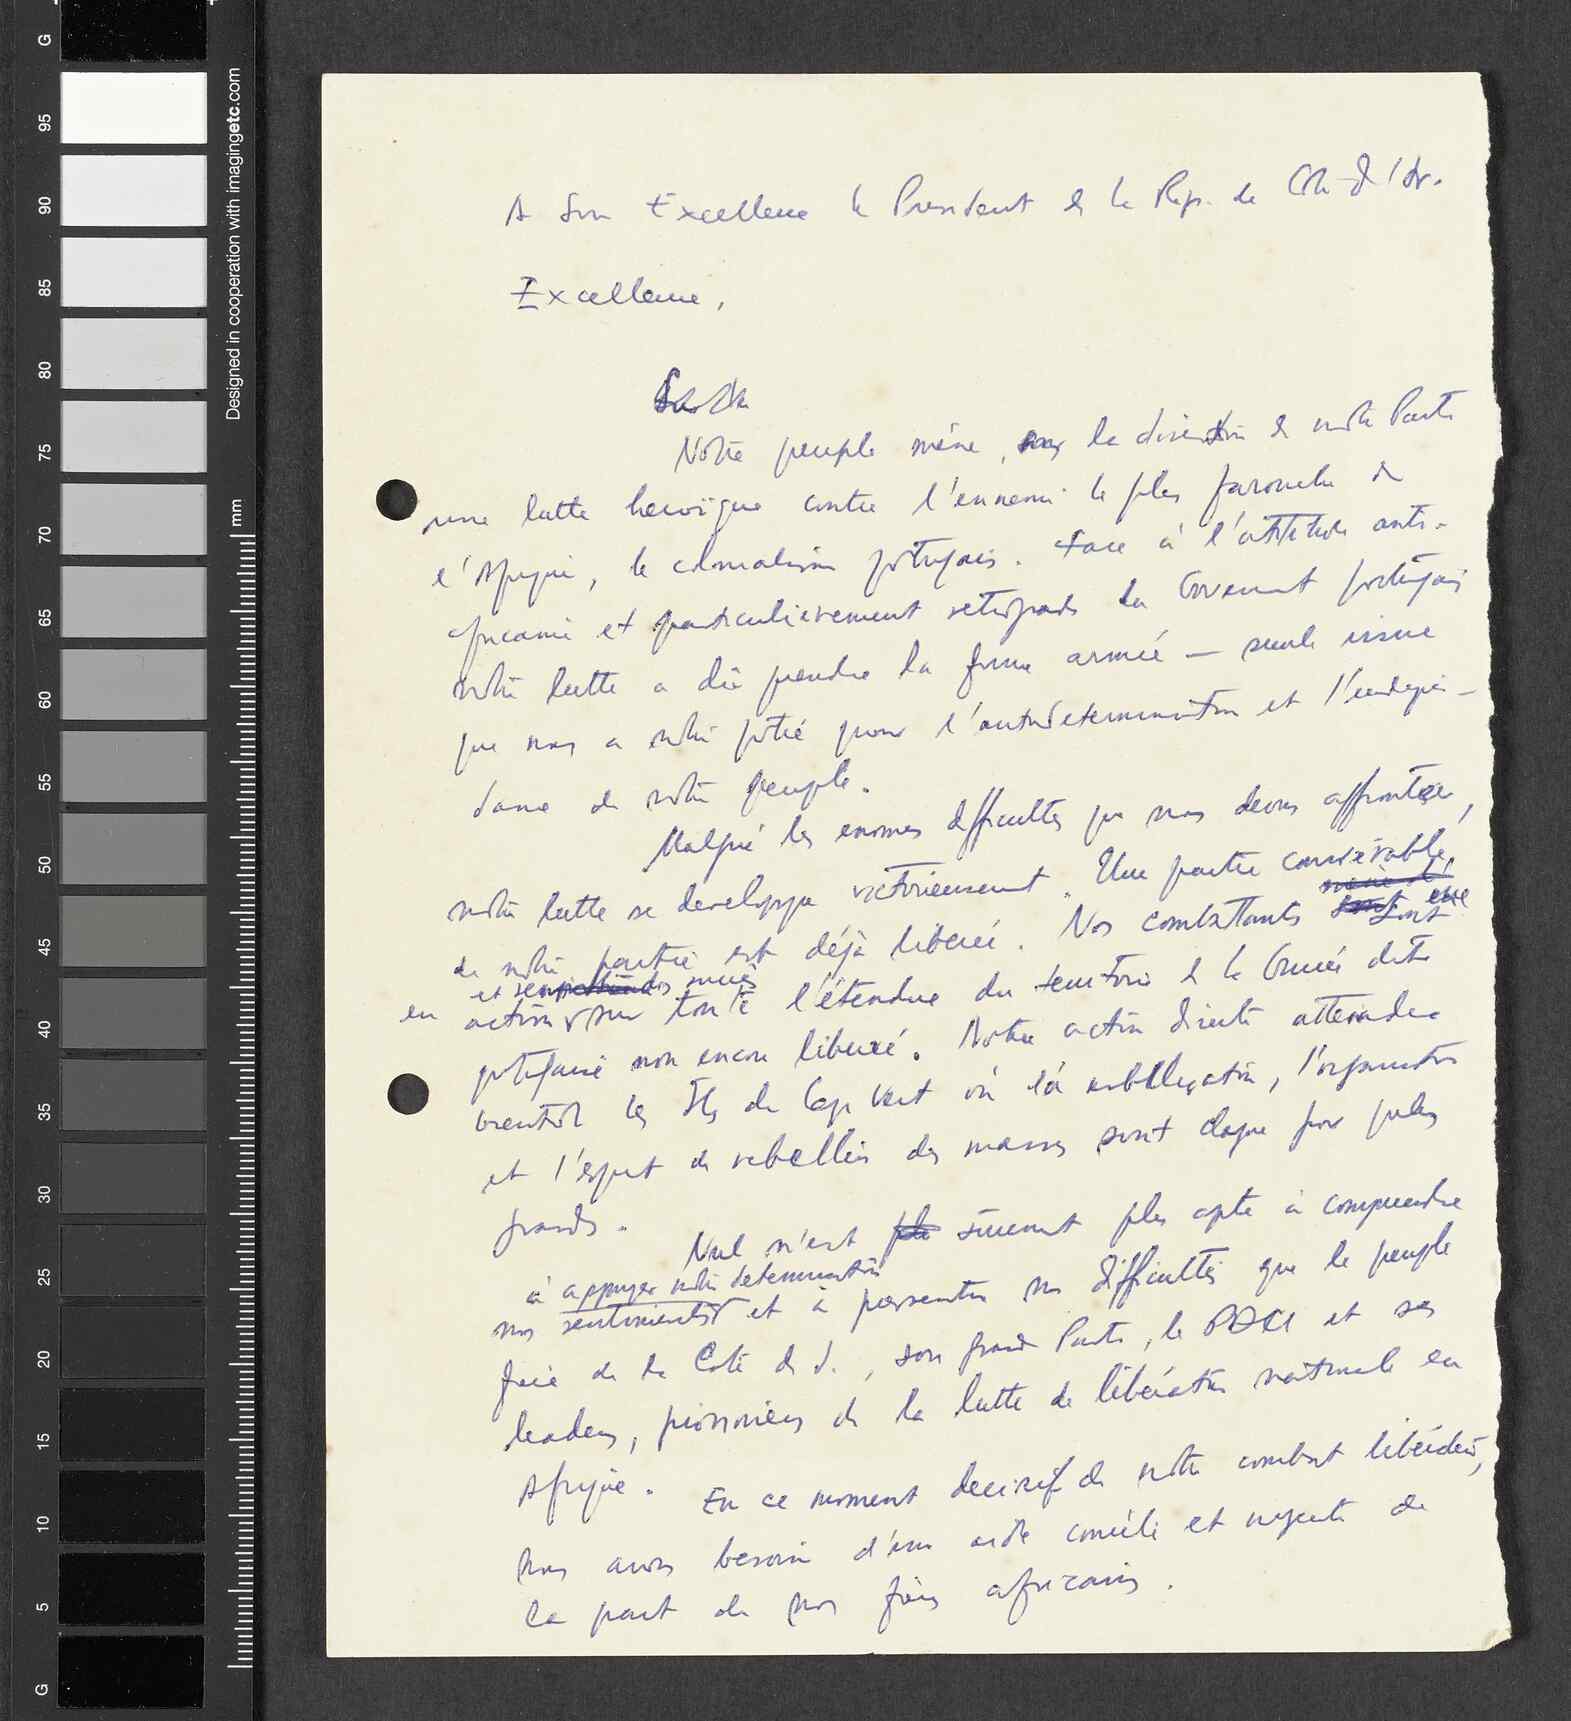 A Son Excellence le President de la Rep. de Côte d'Iv.
Excellence,
Notre peuple mène, sous la direction de notre Parti
une lutte heroïque contre l'ennemi le plus farouche de
l'Afrique, le colonialisme portugais. Face à l'attitude anti-
africaine et particulièrement retrograde du Gouvernement portugais
notre lutte a dû prendre la forme armée — seule issue
que nous a
pour l'autodetermination et l'indepen-
dance de notre peuple.
Malgré les enormes difficultés que nous devons affronter,
notre lutte se developpe victorieusement. Une partie considérable
de notre patrie est déjà liberée. Nos combattants sont
en action sur toute l'étendue du territoire de la Guinée dite
portugaise non encore liberée. Notre action directe atteindra
bientôt les Iles du Cap Vert où la mobilisation, l'organisation
et l'esprit de rebellion des masses sont chaque jour plus
grands.
Nul n'est sûrement plus apte à comprendre
à appuyer notre determination
nos sentiments et à
nos difficultés que le peuple
frère de la Côte d. I., son grand Parti, le PDCI et ses
leaders, pionniers de la lutte de libération nationale en
Afrique. En ce moment decisif de notre combat libérateur,
nous avons besoin d'une aide concrète et urgente de
la part de nos frères africains.
G
95
90
85
80
75
70
65
60
55
50
45
40
35
30
25
20
15
10
5
G
Designed in cooperation with imagingetc.com
mm